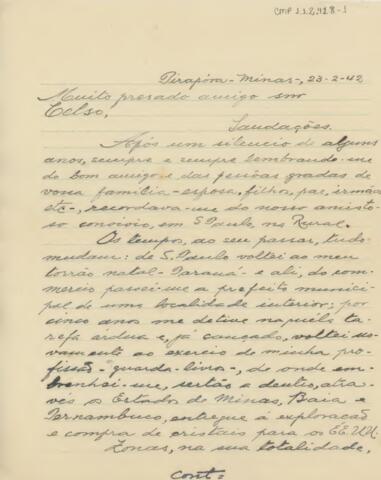 CMP 1.1.2.428-1
Pirapóra - Minas -, 23-2-42
Muito presado amigo snr
Celso,
Saudações.
Após um silencio de alguns
anos, sempre e sempre lembrando-me
do bom amigo e das pessôas gradas de
vossa familia - esposa, filho, pae, irmãos
etc -, recordava-me do nosso amisto-
so convivio, em S. Paulo, na Rural.
Os tempos, ao seu passar, tudo
mudam: de S. Paulo voltei ao meu
torrão natal - Paraná - e ali, do com-
mercio passei-me a prefeito munici-
pal de uma localidade interior; por
cinco anos me detive naquela ta-
refa ardua e, já cançado, voltei no-
vamente ao exercio de minha pro-
fissão - "guarda-livros" -, de onde em-
brenhei-me, sertão a dentro, atra-
vés os Estados de Minas, Baia e
Pernambuco, entregue á exploração
e compra de cristais para os EE. UU.
Zonas, na sua totalidade,
Cont: